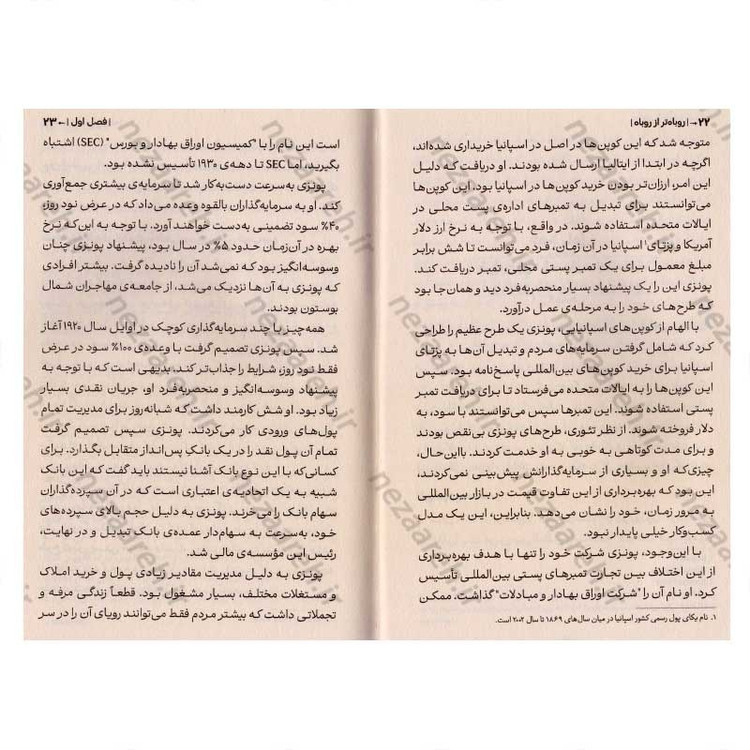 ۲۲ → | روباه‌تر از روباه |
متوجه شد که این کوپن‌ها در اصل در اسپانیا خریداری شده‌اند،
اگرچه در ابتدا از ایتالیا ارسال شده بودند. او دریافت که دلیل
این امر، ارزان‌تر بودن خرید کوپن‌ها در اسپانیا بود. این کوپن‌ها
می‌توانستند برای تبدیل به تمبرهای اداره‌ی پست محلی در
ایالات متحده استفاده شوند. در واقع، با توجه به نرخ ارز دلار
آمریکا و پزتای۱ اسپانیا در آن زمان، فرد می‌توانست تا شش برابر
مبلغ معمول برای یک تمبر پستی محلی، تمبر دریافت کند.
پونزی این را یک پیشنهاد بسیار منحصربه‌فرد دید و همان‌جا بود
که طرح‌های خود را به مرحله‌ی عمل درآورد.
با الهام از کوپن‌های اسپانیایی، پونزی یک طرح عظیم را طراحی
کرد که شامل گرفتن سرمایه‌های مردم و تبدیل آن‌ها به پزتای
اسپانیا برای خرید کوپن‌های بین‌المللی پاسخ‌نامه بود. سپس
این کوپن‌ها را به ایالات متحده می‌فرستاد تا برای دریافت تمبر
پستی استفاده شوند. این تمبرها سپس می‌توانستند با سود، به
دلار فروخته شوند. از نظر تئوری، طرح‌های پونزی بی‌نقص بودند
و برای مدت کوتاهی به خوبی به او خدمت کردند. بااین‌حال،
چیزی‌که او و بسیاری از سرمایه‌گذارانش پیش‌بینی نمی‌کردند،
این بود که بهره‌برداری از این تفاوت قیمت در بازار بین‌المللی
به مرور زمان، خود را نشان می‌دهد. بنابراین، این یک مدل
کسب‌وکار خیلی پایدار نبود.
با این‌وجود، پونزی شرکت خود را تنها با هدف بهره‌برداری
از این اختلاف بین تجارت تمبرهای پستی بین‌المللی تأسیس
کرد. او نام آن را "شرکت اوراق بهادار و مبادلات" گذاشت. ممکن
۱. نام یکای پول رسمی کشور اسپانیا در میان سال‌های ۱۸۶۹ تا سال ۲۰۰۲ است.
| فصل اول | ← ۲۳
است این نام را با "کمیسیون اوراق بهادار و بورس" (SEC) اشتباه
بگیرید، اما SEC تا دهه‌ی ۱۹۳۰ تأسیس نشده بود.
پونزی به‌سرعت دست‌به‌کار شد تا سرمایه‌ی بیشتری جمع‌آوری
کند. او به سرمایه‌گذاران بالقوه وعده می‌داد که در عرض نود روز،
۴۰% سود تضمینی به‌دست خواهند آورد. با توجه به این‌که نرخ
بهره در آن‌زمان حدود ۵% در سال بود، پیشنهاد پونزی چنان
وسوسه‌انگیز بود که نمی‌شد آن را نادیده گرفت. بیشتر افرادی
که پونزی به آن‌ها نزدیک می‌شد، از جامعه‌ی مهاجران شمال
بوستون بودند.
همه‌چیز با چند سرمایه‌گذاری کوچک در اوایل سال ۱۹۲۰ آغاز
شد. سپس پونزی تصمیم گرفت با وعده‌ی ۱۰۰% سود در عرض
فقط نود روز، شرایط را جذاب‌تر کند. بدیهی است که با توجه به
پیشنهاد وسوسه‌انگیز و منحصربه‌فرد او، جریان نقدی بسیار
زیاد بود. او شش کارمند داشت که شبانه‌روز برای مدیریت تمام
پول‌های ورودی کار می‌کردند. پونزی سپس تصمیم گرفت
تمام آن پول نقد را در یک بانک پس‌انداز متقابل بگذارد. برای
کسانی‌که با این نوع بانک آشنا نیستند باید گفت که این بانک
شبیه به یک اتحادیه‌ی اعتباری است که در آن سپرده‌گذاران
سهام بانک را می‌خرند. پونزی به دلیل حجم بالای سپرده‌های
خود، به‌سرعت به سهام‌دار عمده‌ی بانک تبدیل و در نهایت،
رئیس این مؤسسه‌ی مالی شد.
پونزی به دلیل مدیریت مقادیر زیادی پول و خرید املاک
و مستغلات مختلف، بسیار مشغول بود. قطعاً زندگی مرفه و
تجملاتی داشت که بیشتر مردم فقط می‌توانند رویای آن را در سر
nezaareh.ir